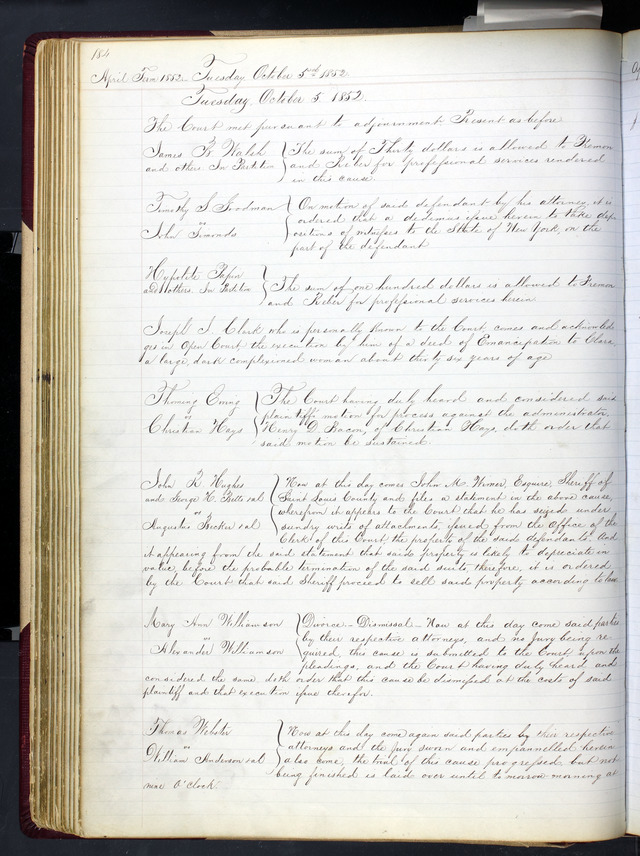 184
April Term 1852. Tuesday October 5 1852.
Tuesday October 5 1852.
The Court met pursuant to adjournment Present as before
James B. Walsh
and others. In Partition
The sum of Thirty dollars is allowed to
and Reber for professional services rendered
in this cause.
Timothy S Goodman
vs
John Simonds
On motion of said defendant by his attorney, it is
ordered that a dedimus issue herein to take dep-
ositions of witnesses to the State of New York, on the
part of the defendant
Hypolite Papin
and others. In Partition
The sum of one hundred dollars is allowed to
and Reber for professional services herein
Joseph J. Clark who is personally known to the Court, comes and acknowled
ges in Open Court the execution by him of a deed of Emancipation to Clara
a large, dark complexioned woman about thirty six years of age
Thomas Ewing
vs
Christian Hays
The Court having duly heard and considered said
plaintiffs motion for process against the administrator,
Henry D. Bacon, of Christian Hays, doth order that
said motion be sustained.
John R Hughes
and George H. et al
vs
Augustus Becker et al
Now at this day comes John M. Wimer, Esquire, Sheriff of
Saint Louis County and files a statement in the above cause,
wherefrom it appears to the Court that he has seized under
sundry writs of attachments, issued from the Office of the
Clerk of this Court, the property of the said defendants. And
it appearing from the said statement that said property is likely to depreciate in
value, before the probable termination of the said suits, therefore, it is ordered
by the Court that said Sheriff proceed to sell said property according to law
Mary Ann Williamson
vs
Alexander Williamson
Divorce - Dismissal - Now at this day come said parties
by their respective attorneys, and no Jury being re-
quired, this cause is submitted to the Court, upon the
pleadings, and the Court having duly heard and
considered the same doth order that this cause be dismissed at the costs of said
plaintiff and that execution issue therefor.
Thomas Webster
vs
William Anderson et al
Now at this day come again said parties by their respective
attorneys and the Jury sworn and empannelled herein
also come, the trial of this cause progressed but not
being finished is laid over until to morrow morning at
nine O'clock.